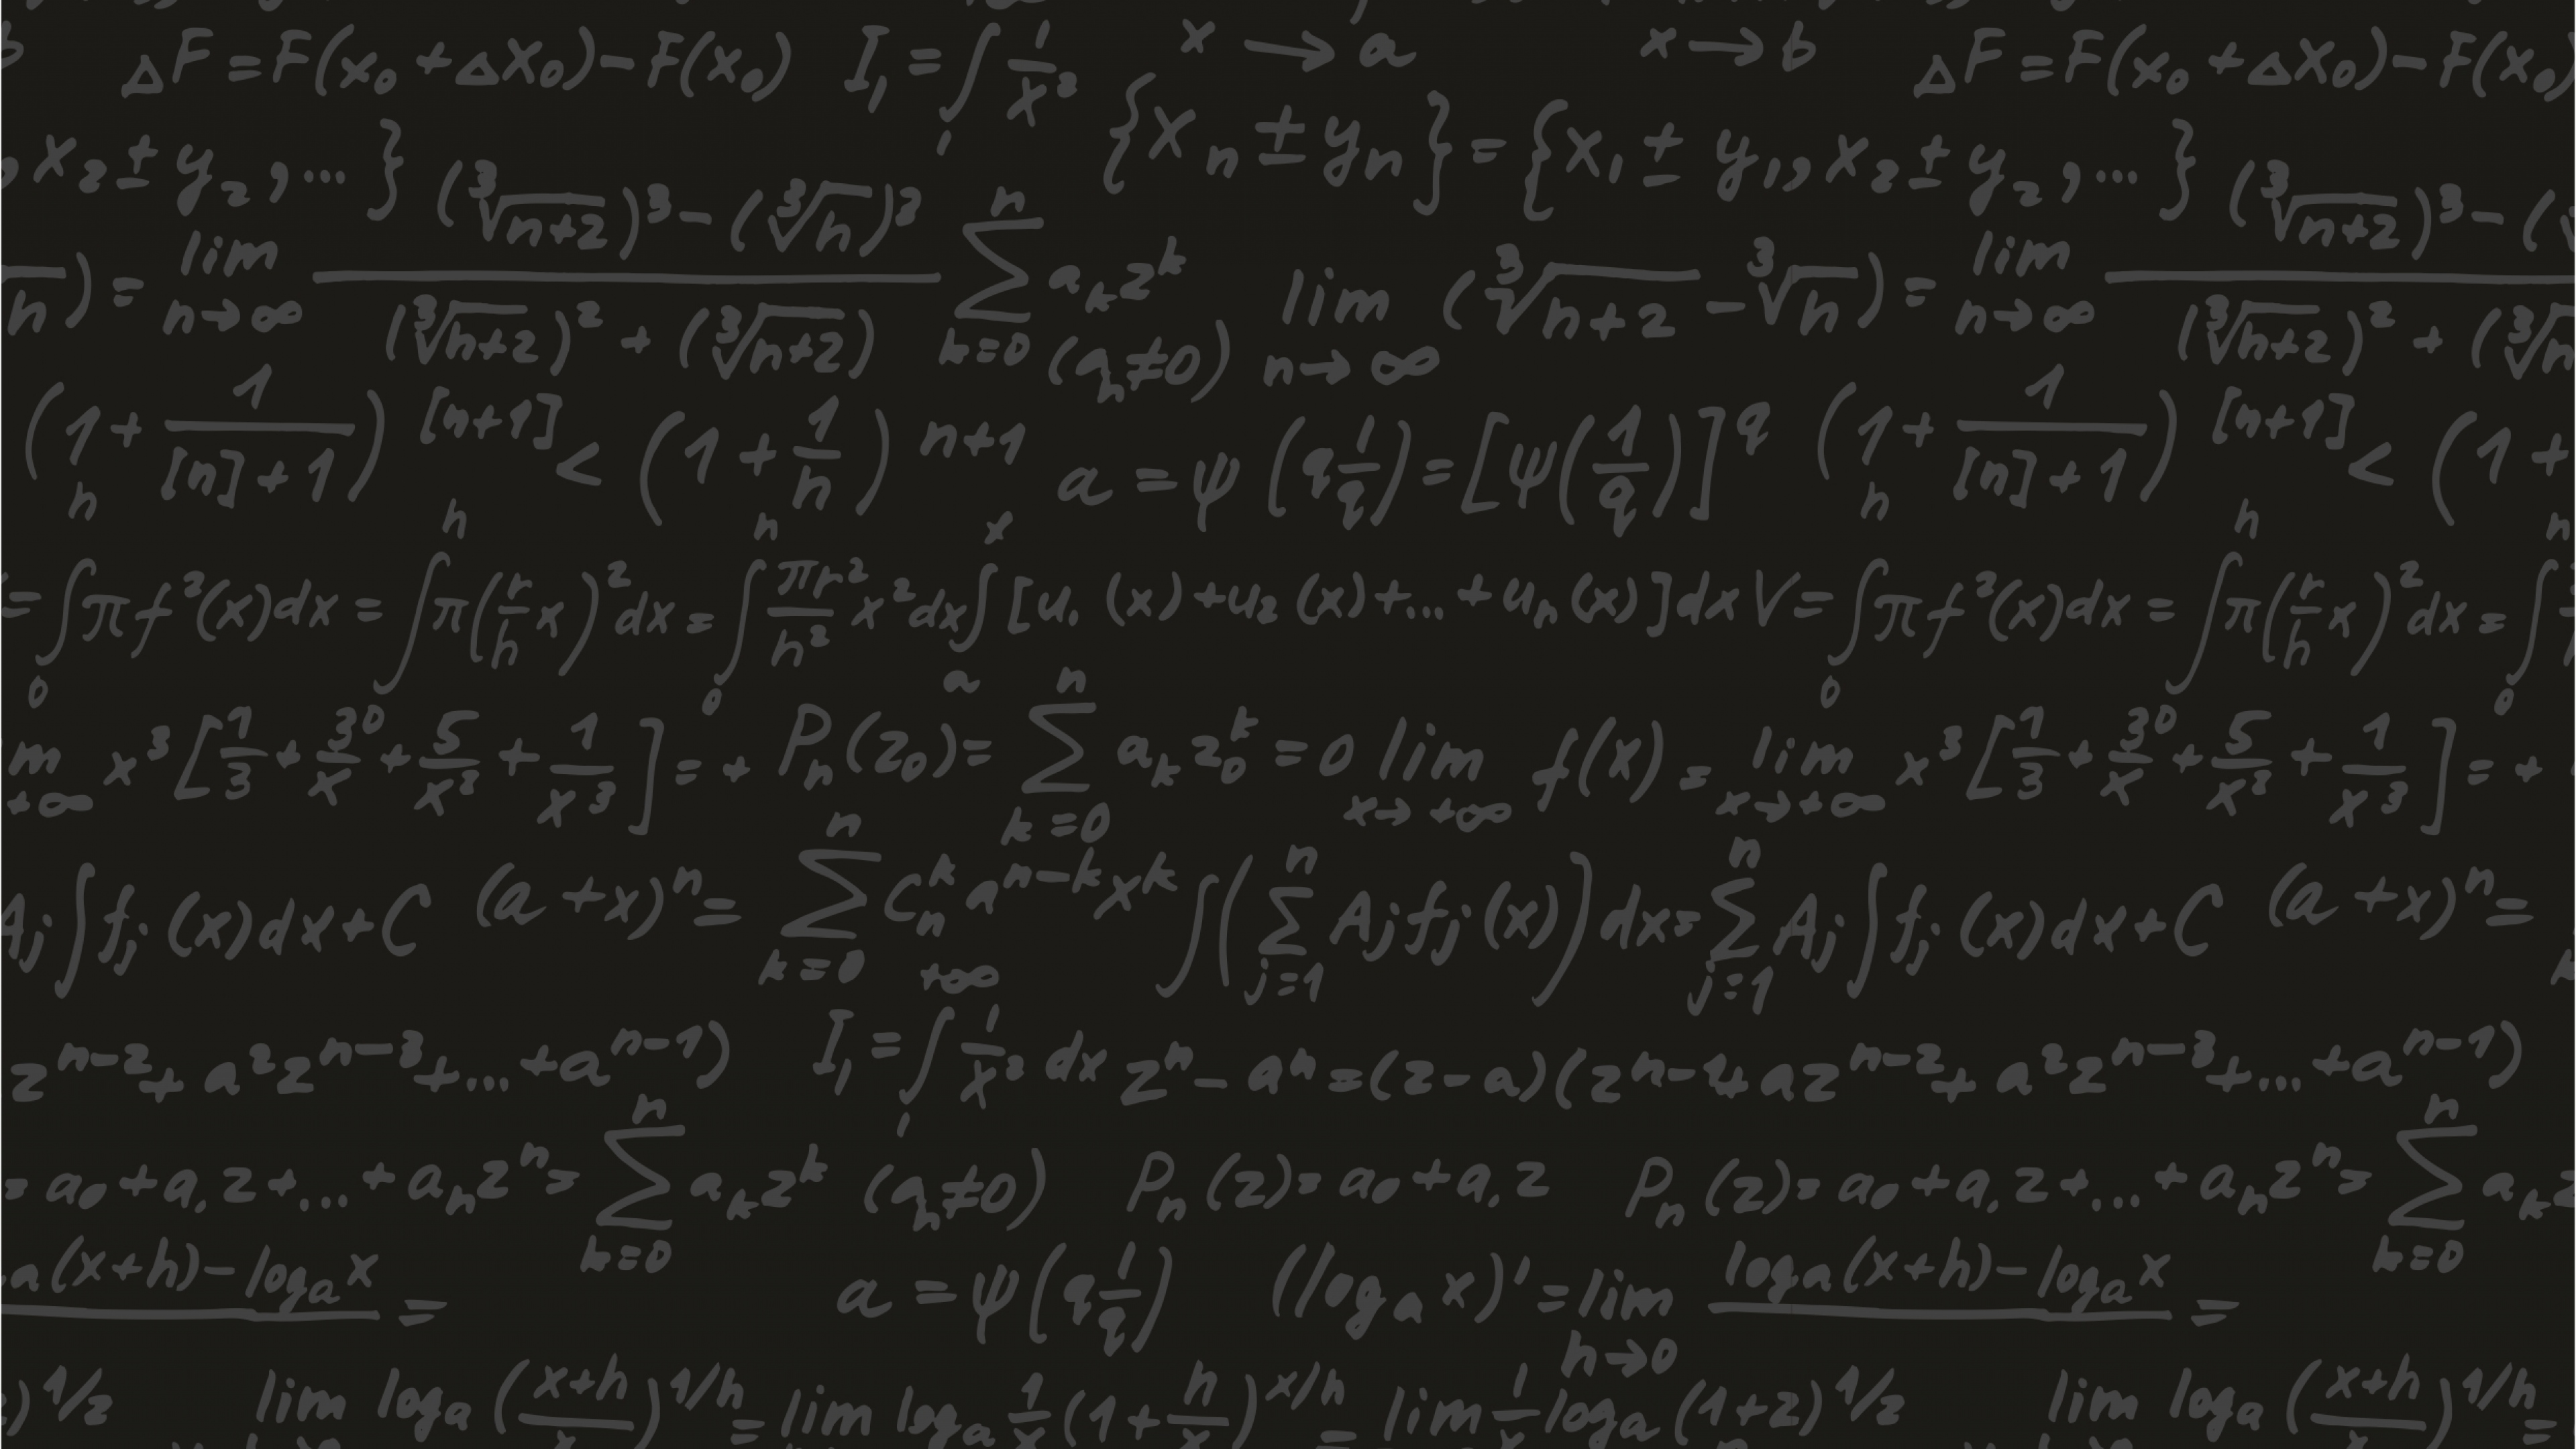 b ΔF = F(x₀ + Δx₀) − F(x₀) I₁ = ∫₁ 1/x³ x → a x → b ΔF = F(x₀ + Δx₀) − F(x₀)
x₂ ± y₂, ... } {xₙ ± yₙ} = {x₁ ± y₁, x₂ ± y₂, ... }
n) = lim n→∞ ((∛(n+2))³ − (∛n)³) / ((∛(n+2))² + (∛(n+2))) ∑ k=0 n aₖzᵏ (aₙ≠0) lim n→∞ (∛(n+2) − ∛n) = lim n→∞ ((∛(n+2))³ − ( / ((∛(n+2))² + (∛n
(1 + 1/([n]+1))^[n+1] < (1 + 1/n)^n+1 a = ψ(q 1/q) = [ψ(1/q)]^q (1 + 1/([n]+1))^[n+1] < (1 +
= ∫₀ʰ πf²(x)dx = ∫ʰ π(r/h x)² dx = ∫₀ʰ πr²/h² x²dx ∫ₐˣ [u₁(x) + u₂(x) + ... + uₙ(x)]dx V = ∫₀ʰ πf²(x)dx = ∫ʰ π(r/h x)² dx = ∫₀ʰ
m +∞ x³[1/3 + 30/x + 5/x² + 1/x³] = + Pₙ(z₀) = ∑ k=0 n aₖz₀ᵏ = 0 lim x→+∞ f(x) = lim x→+∞ x³[1/3 + 30/x + 5/x² + 1/x³] = +
Aⱼ∫fⱼ(x)dx + C (a + x)ⁿ = ∑ k=0 n Cₙᵏ aⁿ⁻ᵏxᵏ ∫(∑ j=1 n Aⱼfⱼ(x))dx = ∑ j=1 n Aⱼ∫fⱼ(x)dx + C (a + x)ⁿ =
zⁿ⁻² + a²zⁿ⁻³ + ... + aⁿ⁻¹) I₁ = ∫₁ +∞ 1/x³ dx zⁿ − aⁿ = (z − a)(zⁿ⁻¹ + azⁿ⁻² + a²zⁿ⁻³ + ... + aⁿ⁻¹)
= a₀ + a₁z + ... + aₙzⁿ = ∑ k=0 n aₖzᵏ (aₙ≠0) Pₙ(z) = a₀ + a₁z Pₙ(z) = a₀ + a₁z + ... + aₙzⁿ = ∑ k=0 n aₖz
a(x+h) − logₐx = a = ψ(q 1/q) (logₐx)' = lim h→0 (loga(x+h) − logₐx) / =
)^1/2 lim logₐ((x+h)/x)^1/h = lim logₐ 1/x (1 + h/x)^x/h = lim 1/x logₐ(1+z)^1/2 lim logₐ((x+h)/x)^1/h =